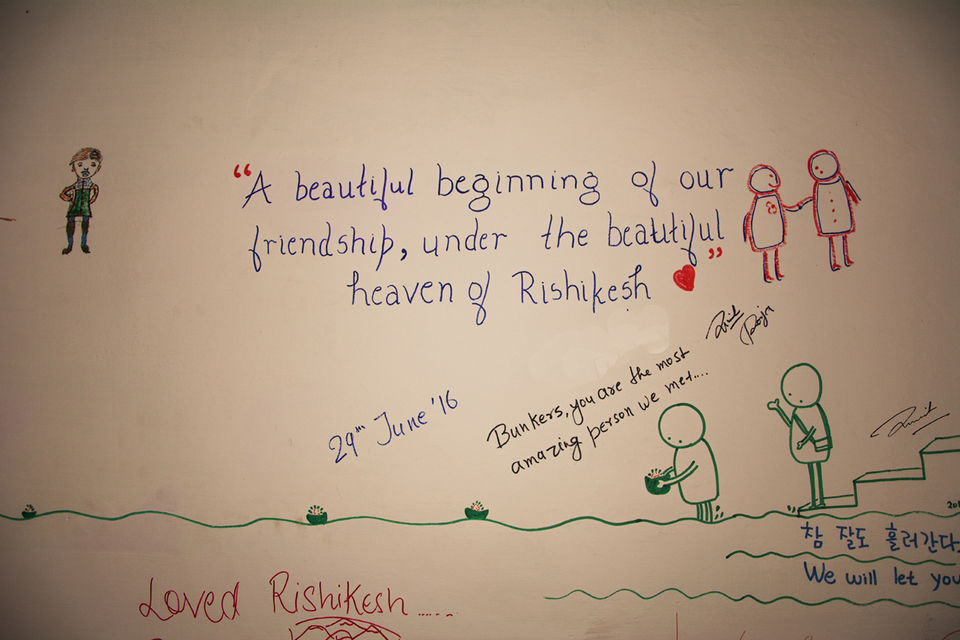 “A beautiful beginning of our
friendship, under the beautiful”
heaven of Rishikesh
Bunkers, you are the most
amazing person we met....
29th June '16
참 잘도 흘러간다
We will let you
Loved Rishikesh......